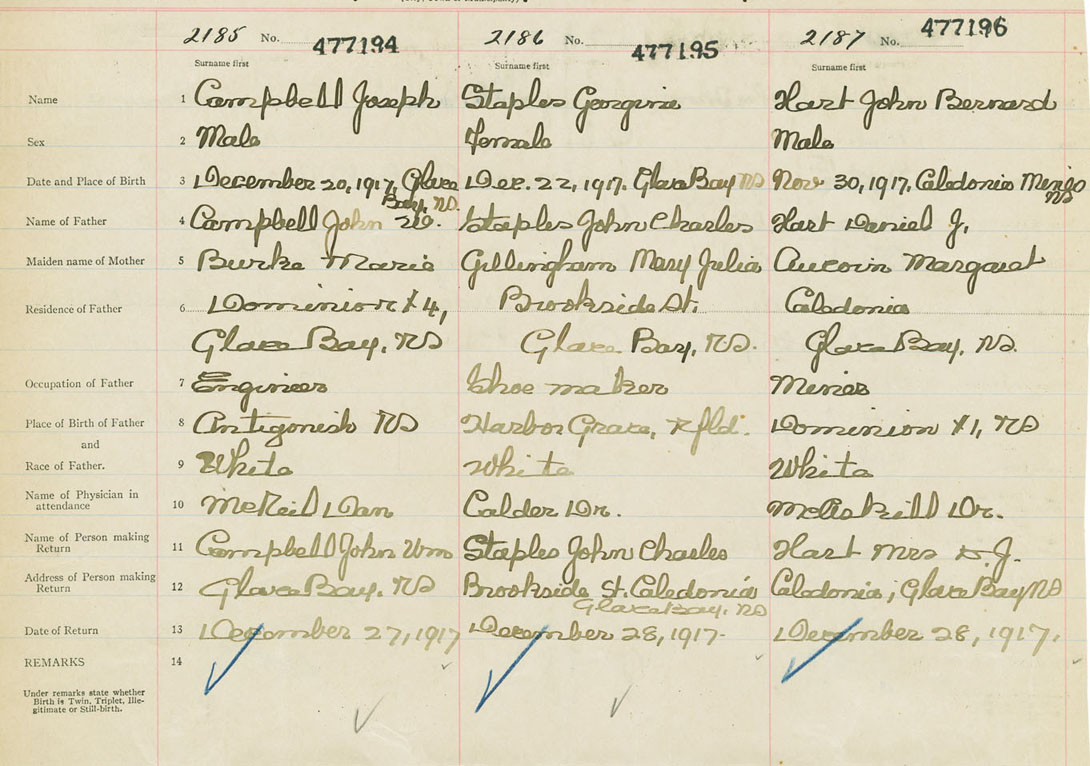 2185 No. 477194 2186 No. 477195 2187 No. 477196
Surname first Surname first Surname first
Name 1 Campbell Joseph Staples Georgine Hart John Bernard
Sex 2 Male Female Male
Date and Place of Birth 3 December 20, 1917, Glace Dec. 22, 1917. Glace Bay NS Nov 30, 1917, Caledonia Mines
Bay, NS. NS
Name of Father 4 Campbell John Staples John Charles Hart Daniel J.
Maiden name of Mother 5 Burke Marie Gillingham Mary Julia Aucoin Margaret
Residence of Father 6 Dominion #4, Brookside St. Caledonia
Glace Bay, NS Glace Bay, NS. Glace Bay, NS.
Occupation of Father 7 Engineer Shoe maker Miner
Place of Birth of Father 8 Antigonish NS Harbor Grace, Nfld. Dominion #1, NS
and
Race of Father. 9 White White White
Name of Physician in
attendance 10 McNeil Dan Calder Dr. McAskill Dr.
Name of Person making
Return 11 Campbell John Wm Staples John Charles Hart Mrs D. J.
Address of Person making
Return 12 Glace Bay, NS Brookside St. Caledonia Caledonia, Glace Bay NS
Glace Bay, NS
Date of Return 13 December 27, 1917 December 28, 1917. December 28, 1917.
REMARKS 14
Under remarks state whether
Birth is Twin, Triplet, Ille-
gitimate or Still-birth.